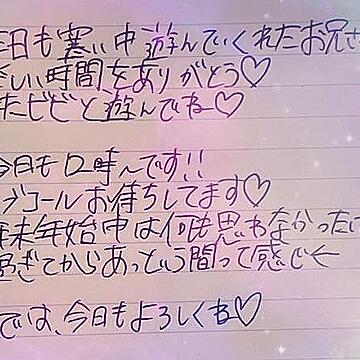 日も寒い中遊んでくれたお兄さ
しい時間をありがとう♡
たビビと遊んでね♡
今日も口時んです!!
ブコールお待ちしてます♡
年末年始中は何も思わなかったい
過ぎてからあっという間って感じ
では、今日もよろしくね♡